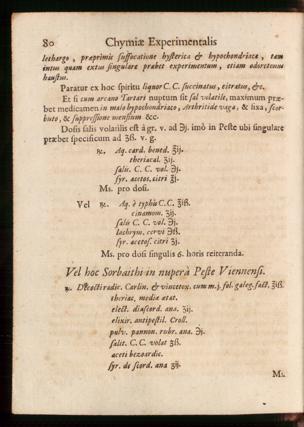 80 Chymiæ Experimentalis
lethargo, præprimis suffocatione hysterica & hypochondriaca, tam
intus quam extus singulare præbet experimentum, etiam odoretenus
haustus.
Paratur ex hoc spiritu liquor C. C. succinatus, citratus, &c.
Et si cum arcano Tartari nuptum sit sal volatile, maximum præ-
bet medicamen in malo hypochondriaco, Arthritide vaga, & fixa, scor-
buto, & suppressione mensium &c.
Dosis salis volatilis est â gr. v. ad ℈j. imò in Peste ubi singulare
præbet specificum ad ʒß. v. g.
℞. Aq. card. bened. ℥ij.
theriacal. ʒij.
salis. C. C. vol. ℈j.
syr. acetos. citri ℥j.
Ms. pro dosi.
Vel ℞. Aq. è typhis C. C. ℥iß.
cinamom. ʒij.
salis C. C. vol. ℈j.
lachrym. cervi ℈ß.
syr. acetos. citri ʒj.
Ms. pro dosi singulis 6. horis reiteranda.
Vel hoc Sorbaithi in nuperà Peste Viennensi.
℞. Decocti radic. Carlin. & vincetox. cum m. j. fol. galeg. fact. ℥iß.
theriac. mediæ ætat.
elect. diascord. ana. ʒij.
elixir. antipestil. Croll.
pulv. pannon. rubr. ana. ℈j.
salis. C. C. volat ʒß.
aceti bezoardic.
syr. de scord. ana ʒij.
Ms.